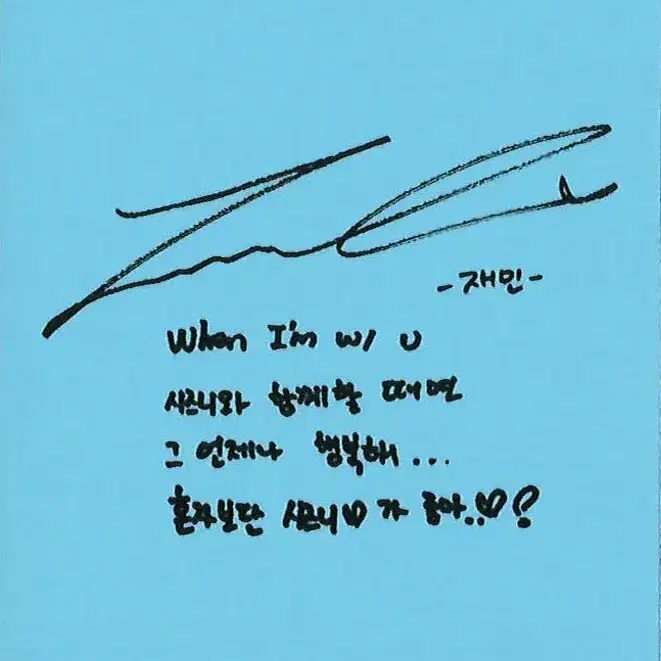 -재민-
When I'm w/ U
시즈니와 함께할 때면
그 언제나 행복해...
혼자보단 시즈니♡가 좋아..♡?